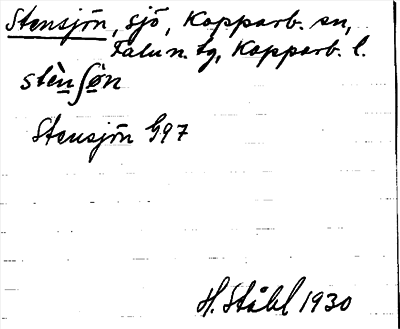 Stensjön, sjö, Kopparb. sn,
Falu n. tg, Kopparb. l.
stè̱nʃø̱n
Stensjön G97
H. Ståhl 1930